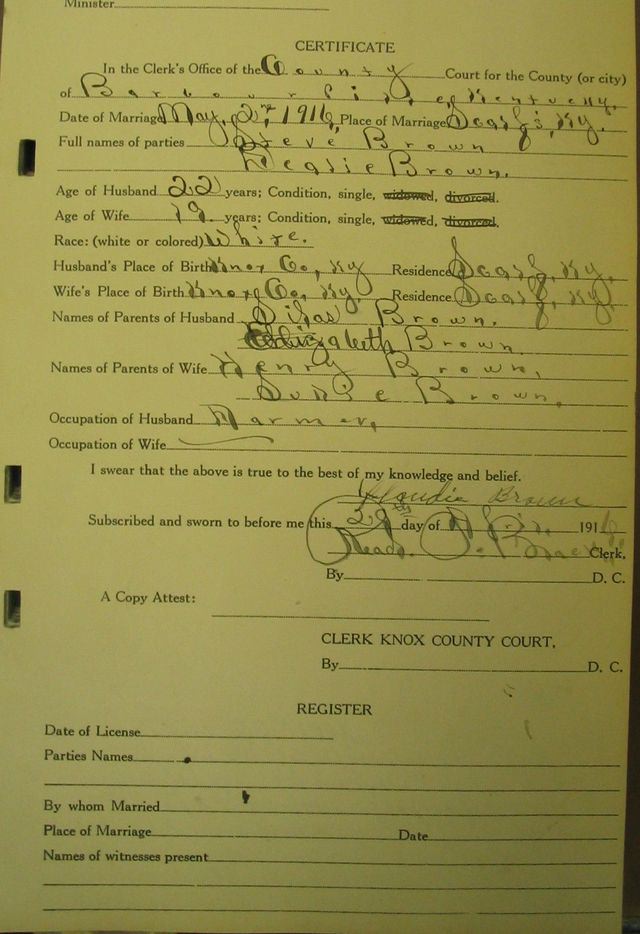 Minister
CERTIFICATE
In the Clerk's Office of the County Court for the County (or city)
of Barbourville, Kentucky.
Date of Marriage May, 2nd, 1916, Place of Marriage Ky.
Full names of parties Steve Brown
Brown.
Age of Husband 22 years; Condition, single, widowed, divorced.
Age of Wife 19. years; Condition, single, widowed, divorced.
Race: (white or colored) White.
Husband's Place of Birth Knox Co, Ky Residence Ky.
Wife's Place of Birth Knox Co, Ky. Residence Ky.
Names of Parents of Husband Silas Brown.
Elizabeth Brown.
Names of Parents of Wife Henry Brown,
Susie Brown,
Occupation of Husband Farmer,
Occupation of Wife
I swear that the above is true to the best of my knowledge and belief.
Brown
Subscribed and sworn to before me this 29th day of 1916
Read Clerk.
By D. C.
A Copy Attest:
CLERK KNOX COUNTY COURT,
By D. C.
REGISTER
Date of License
Parties Names
By whom Married
Place of Marriage Date
Names of witnesses present